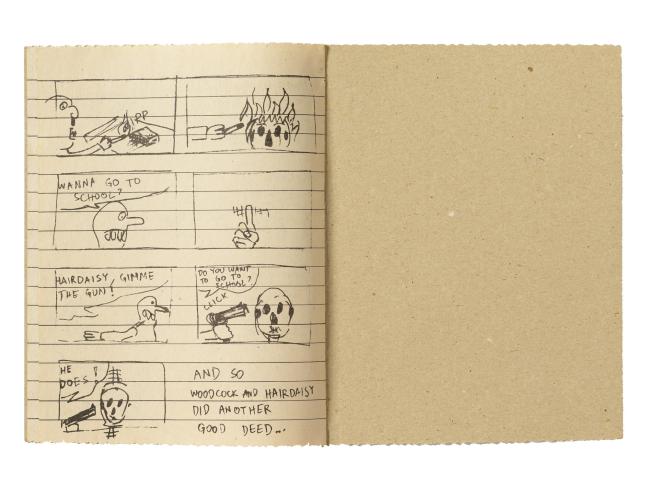 RP
WANNA GO TO
SCHOOL?
HAIRDAISY, GIMME
THE GUN!
DO YOU WANT
TO GO TO
SCHOOL?
CLICK
HE
DOES!
AND SO
WOODCOCK AND HAIRDAISY
DID ANOTHER
GOOD DEED...